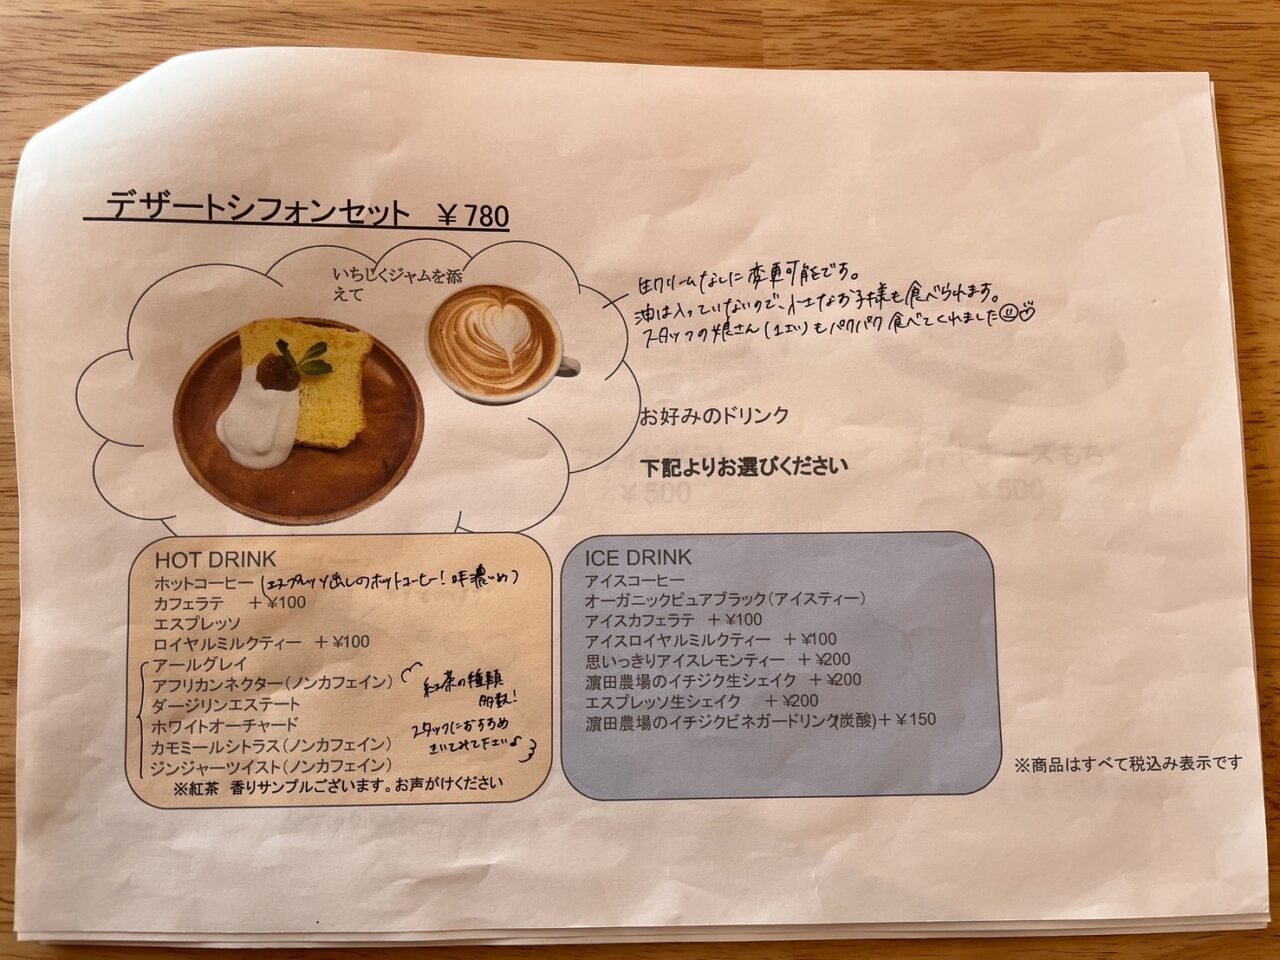 デザートシフォンセット ￥780
いちじくジャムを添
えて
生クリームなしに変更可能です。
油は入っていないので、小さなお子様も食べられます。
スタッフの娘さん(1才)もパクパク食べてくれました
お好みのドリンク
下記よりお選びください
￥500
チーズもち
￥500
HOT DRINK
ホットコーヒー(エスプレッソ出しのホットコーヒー!味濃いめ)
カフェラテ ＋¥100
エスプレッソ
ロイヤルミルクティー ＋¥100
アールグレイ
アフリカンネクター（ノンカフェイン）
ダージリンエステート
ホワイトオーチャード
カモミールシトラス（ノンカフェイン）
ジンジャーツイスト（ノンカフェイン）
紅茶の種類
多数!
スタッフにおすすめ
きいてみて下さい♪
※紅茶 香りサンプルございます。お声がけください
ICE DRINK
アイスコーヒー
オーガニックピュアブラック（アイスティー）
アイスカフェラテ ＋¥100
アイスロイヤルミルクティー ＋¥100
思いっきりアイスレモンティー ＋¥200
濵田農場のイチジク生シェイク ＋¥200
エスプレッソ生シェイク ＋¥200
濵田農場のイチジクビネガードリンク(炭酸)＋¥150
※商品はすべて税込み表示です